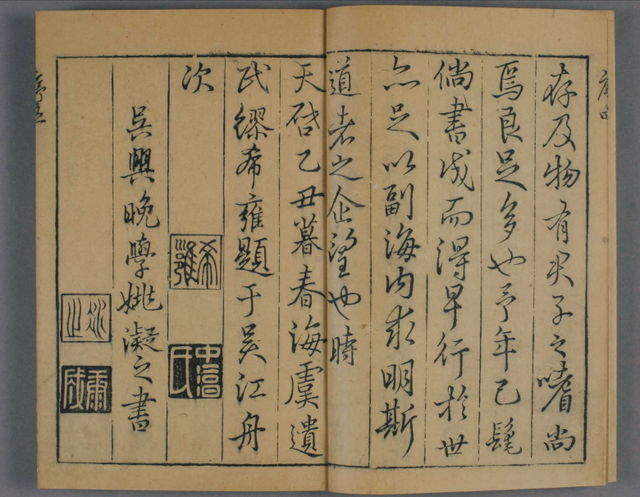 序四
存及物有君子之嗜尚
焉良足多也予年已髦
倘書成而得早行於世
亦足以副海内求明斯
道者之企望也時
天啓乙丑暮春海虞遺
民繆希雍題于吳江舟
次
希雍
吳興晚學姚凝之書
序五